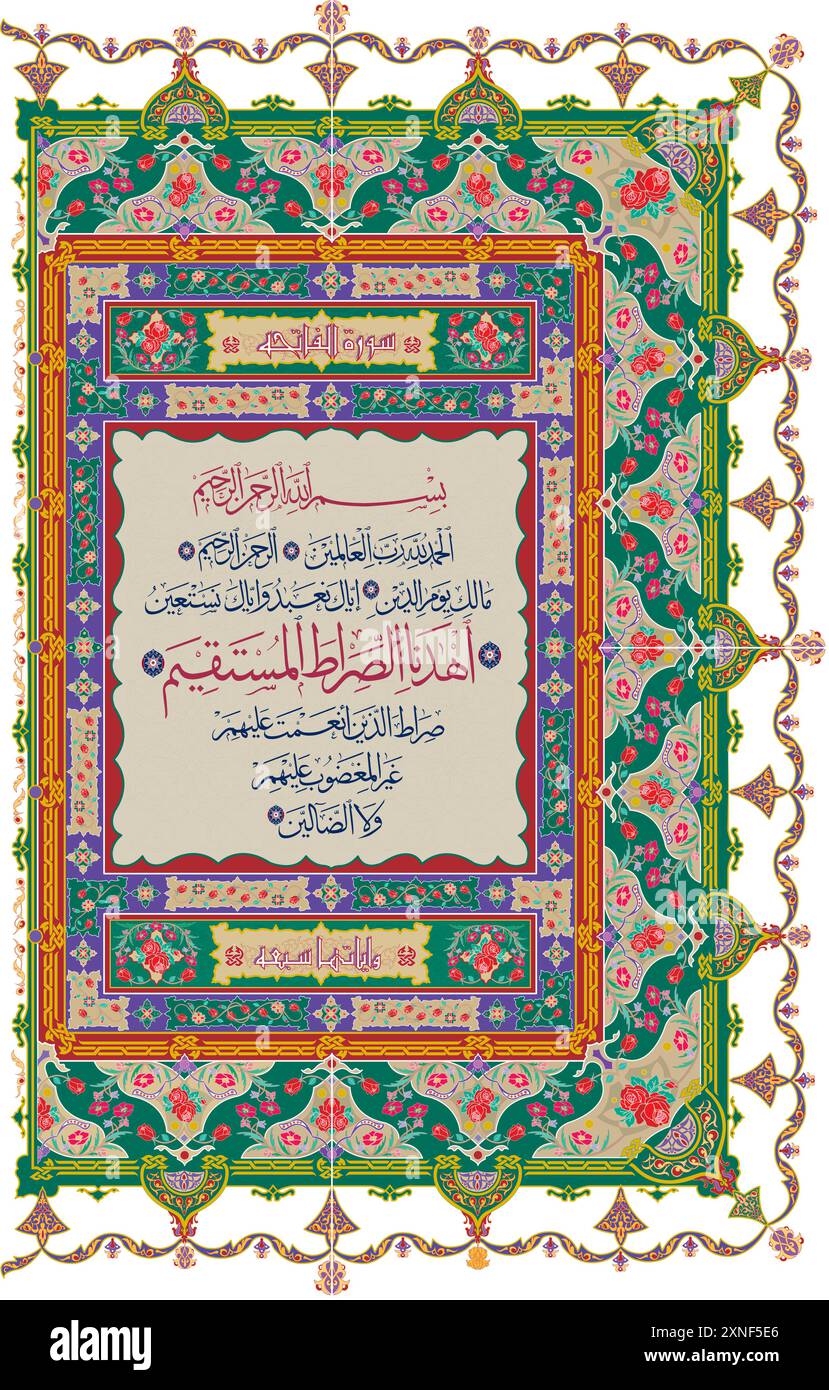 سورة الفاتحه
بسم الله الرحمن الرحيم
الحمد لله رب العالمين الرحمن الرحيم
مالك يوم الدين إياك نعبد وإياك نستعين
اهدنا الصراط المستقيم
صراط الذين أنعمت عليهم
غير المغضوب عليهم
ولا الضالين
واياتها سبعه
alamy
Image ID: 2XNF5E6
www.alamy.com